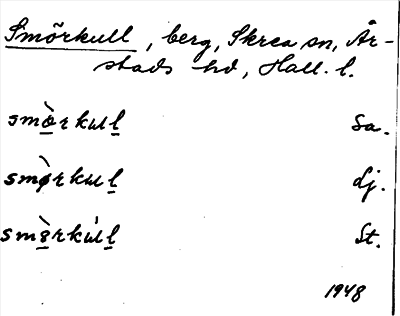 Smörkull, berg, Skrea sn, År-
stads hd, Hall. l.
smò̠rkul̠ Sa.
smø̠̀rkul̠ dj.
smò̠rkùl̠ St.
1948